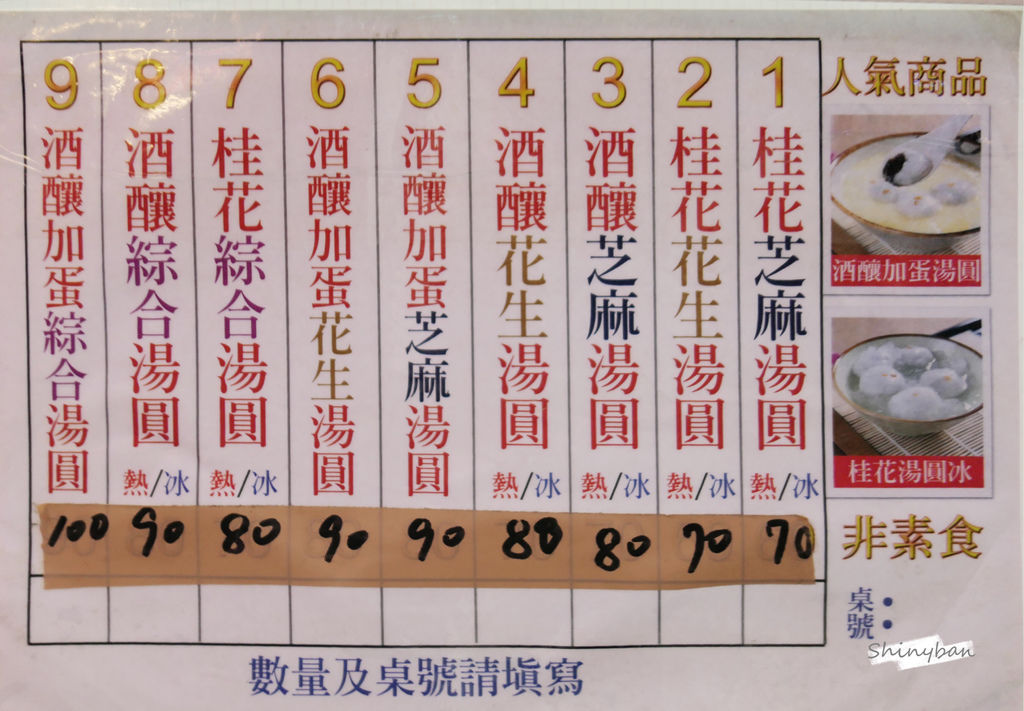 人氣商品
酒釀加蛋湯圓
桂花湯圓冰
非素食
桌號：
1 桂花芝麻湯圓 熱/冰 70
2 桂花花生湯圓 熱/冰 70
3 酒釀芝麻湯圓 熱/冰 80
4 酒釀花生湯圓 熱/冰 80
5 酒釀加蛋芝麻湯圓 90
6 酒釀加蛋花生湯圓 90
7 桂花綜合湯圓 熱/冰 80
8 酒釀綜合湯圓 熱/冰 90
9 酒釀加蛋綜合湯圓 100
數量及桌號請填寫
Shinyban